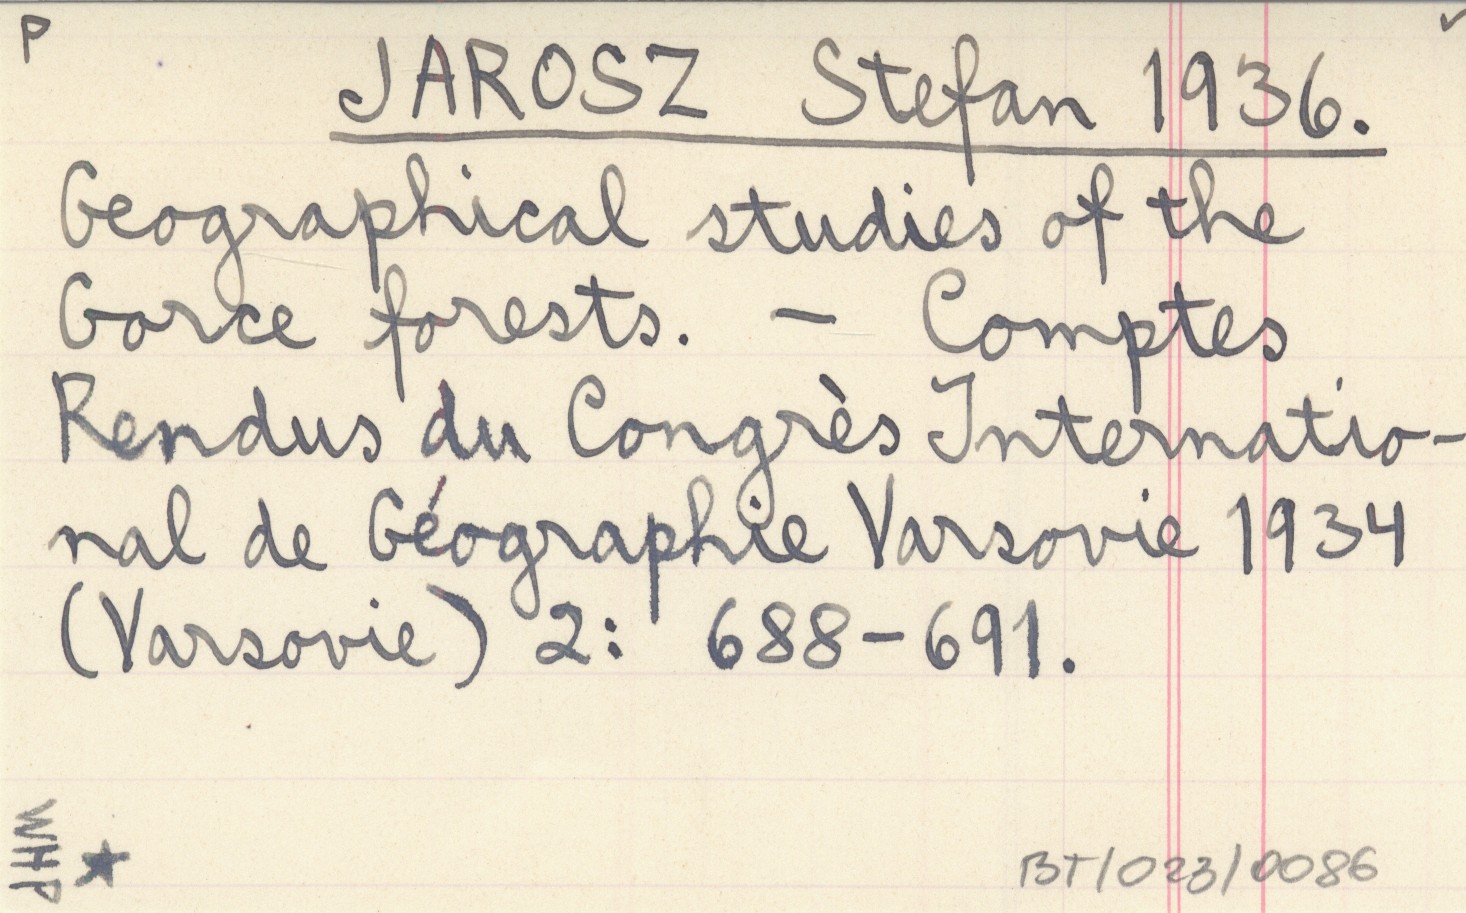 P
JAROSZ Stefan 1936.
Geographical studies of the
Gorce forests. – Comptes
Rendus du Congrès Internatio-
nal de Géographie Varsovie 1934
(Varsovie) 2: 688-691.
WHP
BT/023/0086